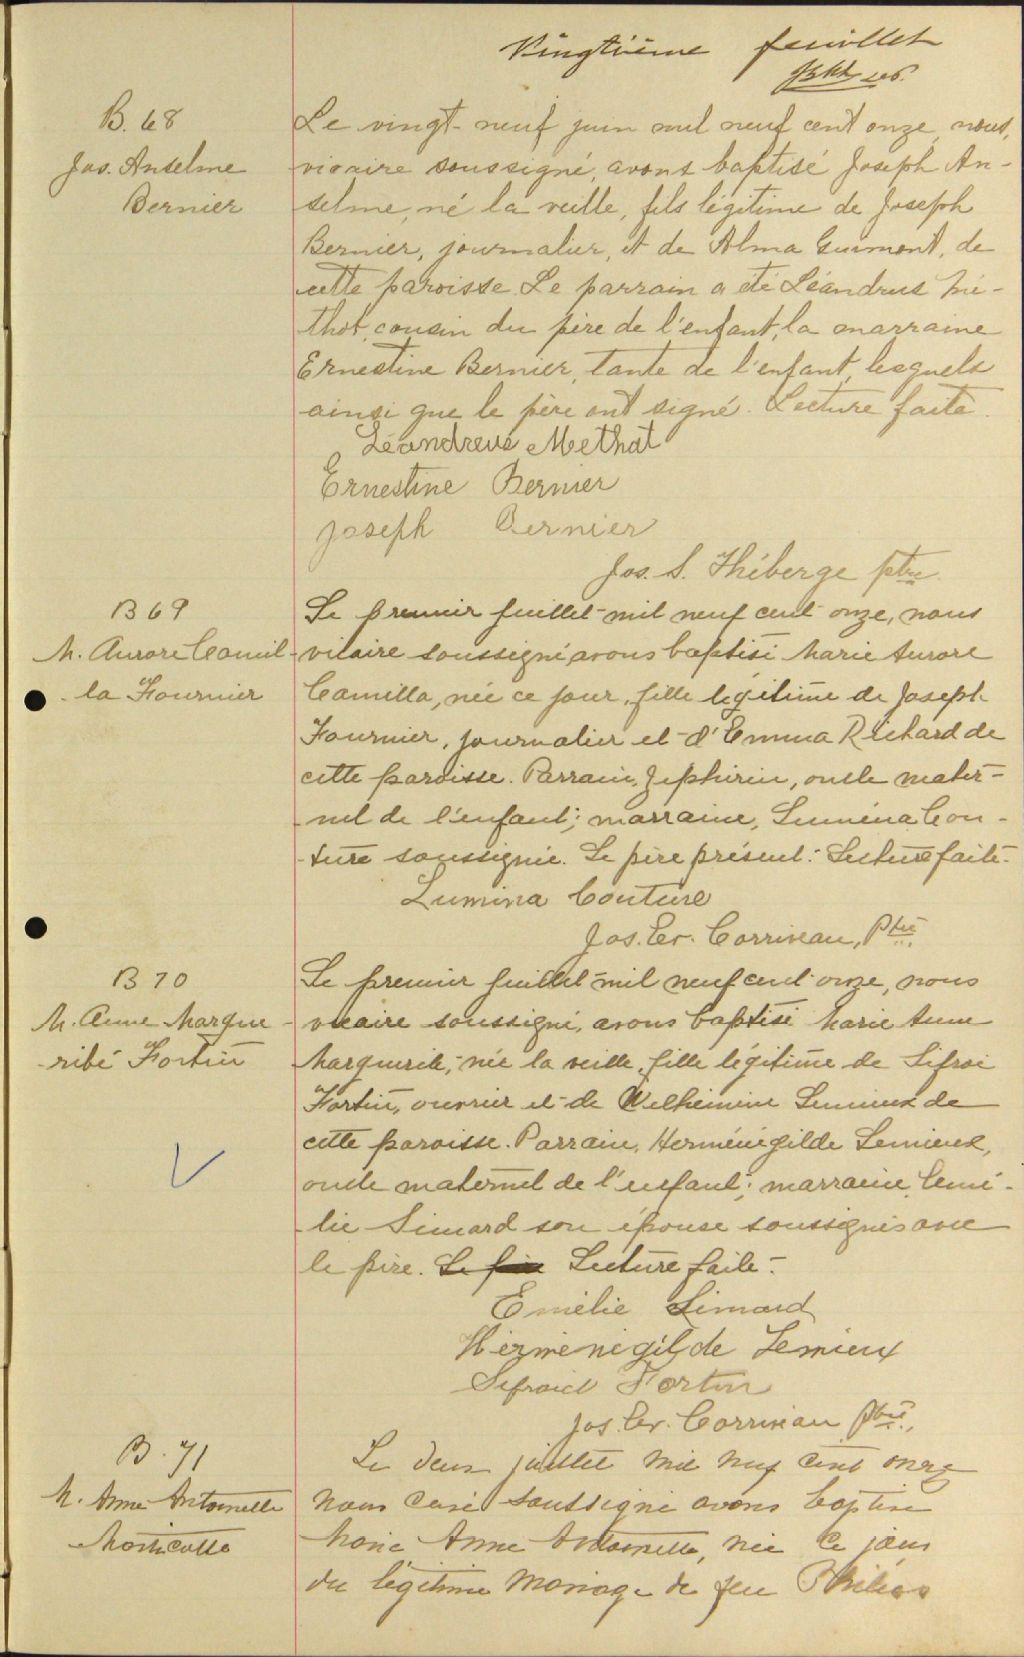 Vingtième feuillet
B. 68
Jos. Anselme
Bernier
Le vingt-neuf juin mil neuf cent onze, nous,
vicaire soussigné, avons baptisé Joseph An-
selme, né la veille, fils légitime de Joseph
Bernier, journalier, et de Alma Guimont, de
cette paroisse. Le parrain a été Léandrus Mé-
thot, cousin du père de l'enfant, la marraine
Ernestine Bernier, tante de l'enfant, lesquels
ainsi que le père ont signé. Lecture faite.
Léandreus Methot
Ernestine Bernier
Joseph Bernier
Jos. S. Théberge ptre
B 69
M. Aurore Camil-
la Fournier
Le premier juillet mil neuf cent onze, nous
vicaire soussigné avons baptisé Marie Aurore
Camilla, née ce jour, fille légitime de Joseph
Fournier, journalier et d'Emma Richard de
cette paroisse. Parrain, Zephirin, oncle mater-
nel de l'enfant; marraine, Luména Cou-
ture soussignée. Le père présent. Lecture faite.
Lumina Couture
Jos. Ev. Corriveau, Ptre
B 70
M. Anne Margue-
rite Fortin
Le premier juillet mil neuf cent onze, nous
vicaire soussigné, avons baptisé Marie Anne
Marguerite, née la veille, fille légitime de Sifroi
Fortin, ouvrier et de Wilhemine Lemieux de
cette paroisse. Parrain, Herménégilde Lemieux,
oncle maternel de l'enfant; marraine, Emé-
lie Simard son épouse soussignés avec
le père. Le père Lecture faite.
Emélie Simard
Herménégilde Lemieux
Sifroid Fortin
Jos. Ev. Corriveau Ptre,
B. 71
M. Anne Antoinette
Le deux juillet mil neuf cent onze
nous curé soussigné avons baptisé
Marie Anne Antoinette, née ce jour
du légitime mariage de feu